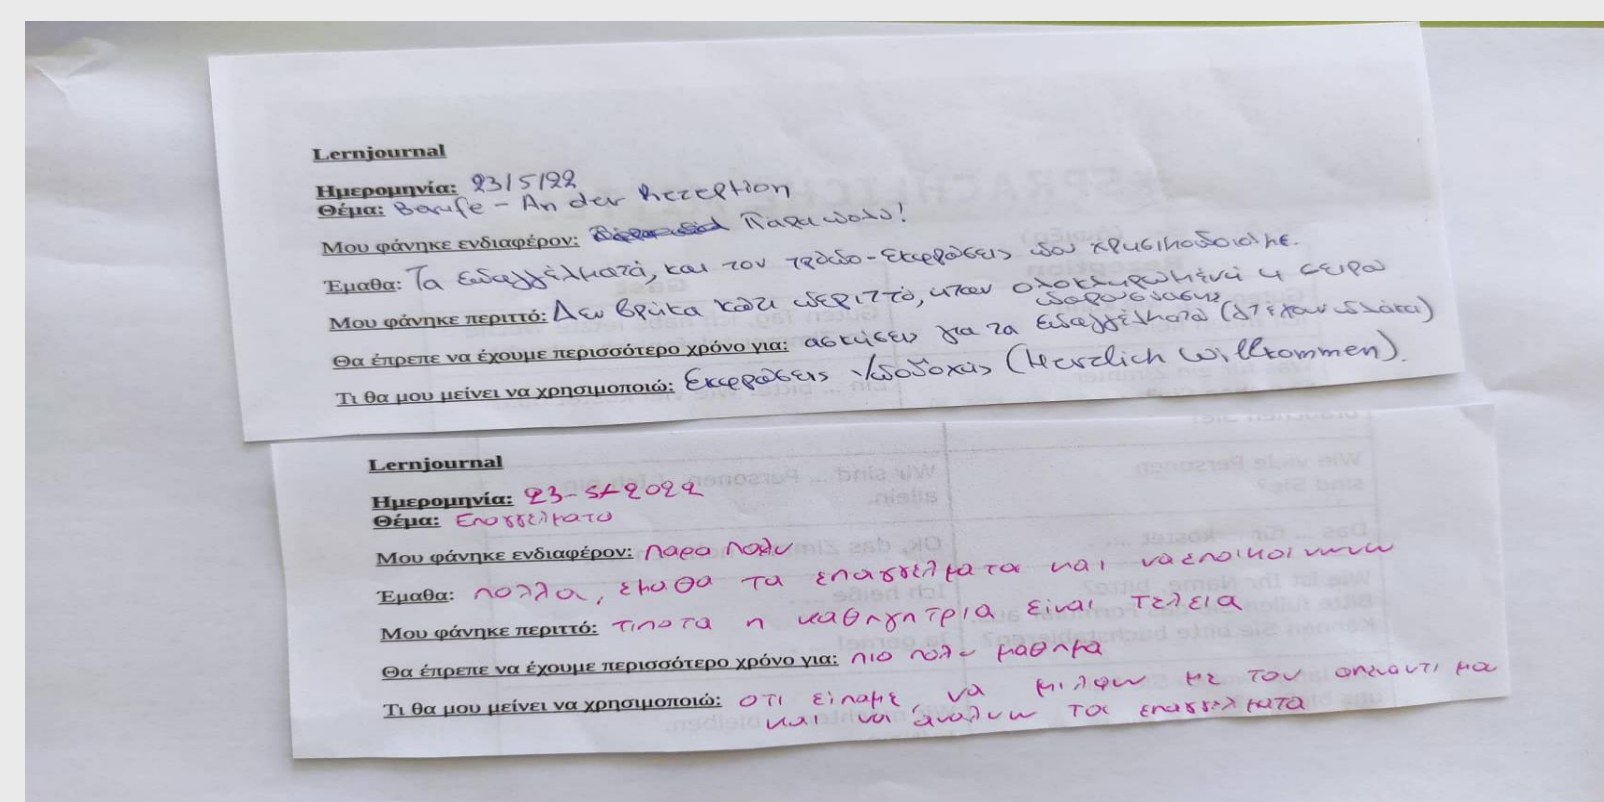 Lernjournal
Ημερομηνία: 23/5/22
Θέμα: Berufe - An der Rezeption
Μου φάνηκε ενδιαφέρον: Παρα πολυ!
Έμαθα: Τα επαγγέλματά, και τον τρόπο - Εκφράσεις που χρησιμοποιούμε.
Μου φάνηκε περιττό: Δεν βρήκα κάτι περιττό, ήταν ολοκληρωμένη η σειρά
παρουσίασης
Θα έπρεπε να έχουμε περισσότερο χρόνο για: ασκήσεις για τα επαγγέλματα
Τι θα μου μείνει να χρησιμοποιώ: Εκφράσεις υποδοχής (Herzlich Willkommen).
Lernjournal
Ημερομηνία: 23-5-2022
Θέμα: Επαγγελματα
Μου φάνηκε ενδιαφέρον: παρα πολυ
Έμαθα: πολλα, εμαθα τα επαγγελματα και να επικοινωνω
Μου φάνηκε περιττό: τιποτα η καθηγητρια ειναι τελεια
Θα έπρεπε να έχουμε περισσότερο χρόνο για: πιο πολυ μαθημα
Τι θα μου μείνει να χρησιμοποιώ: οτι ειπαμε, να μιλαω με τον απεναντι μα
και να αναλυω τα επαγγελματα